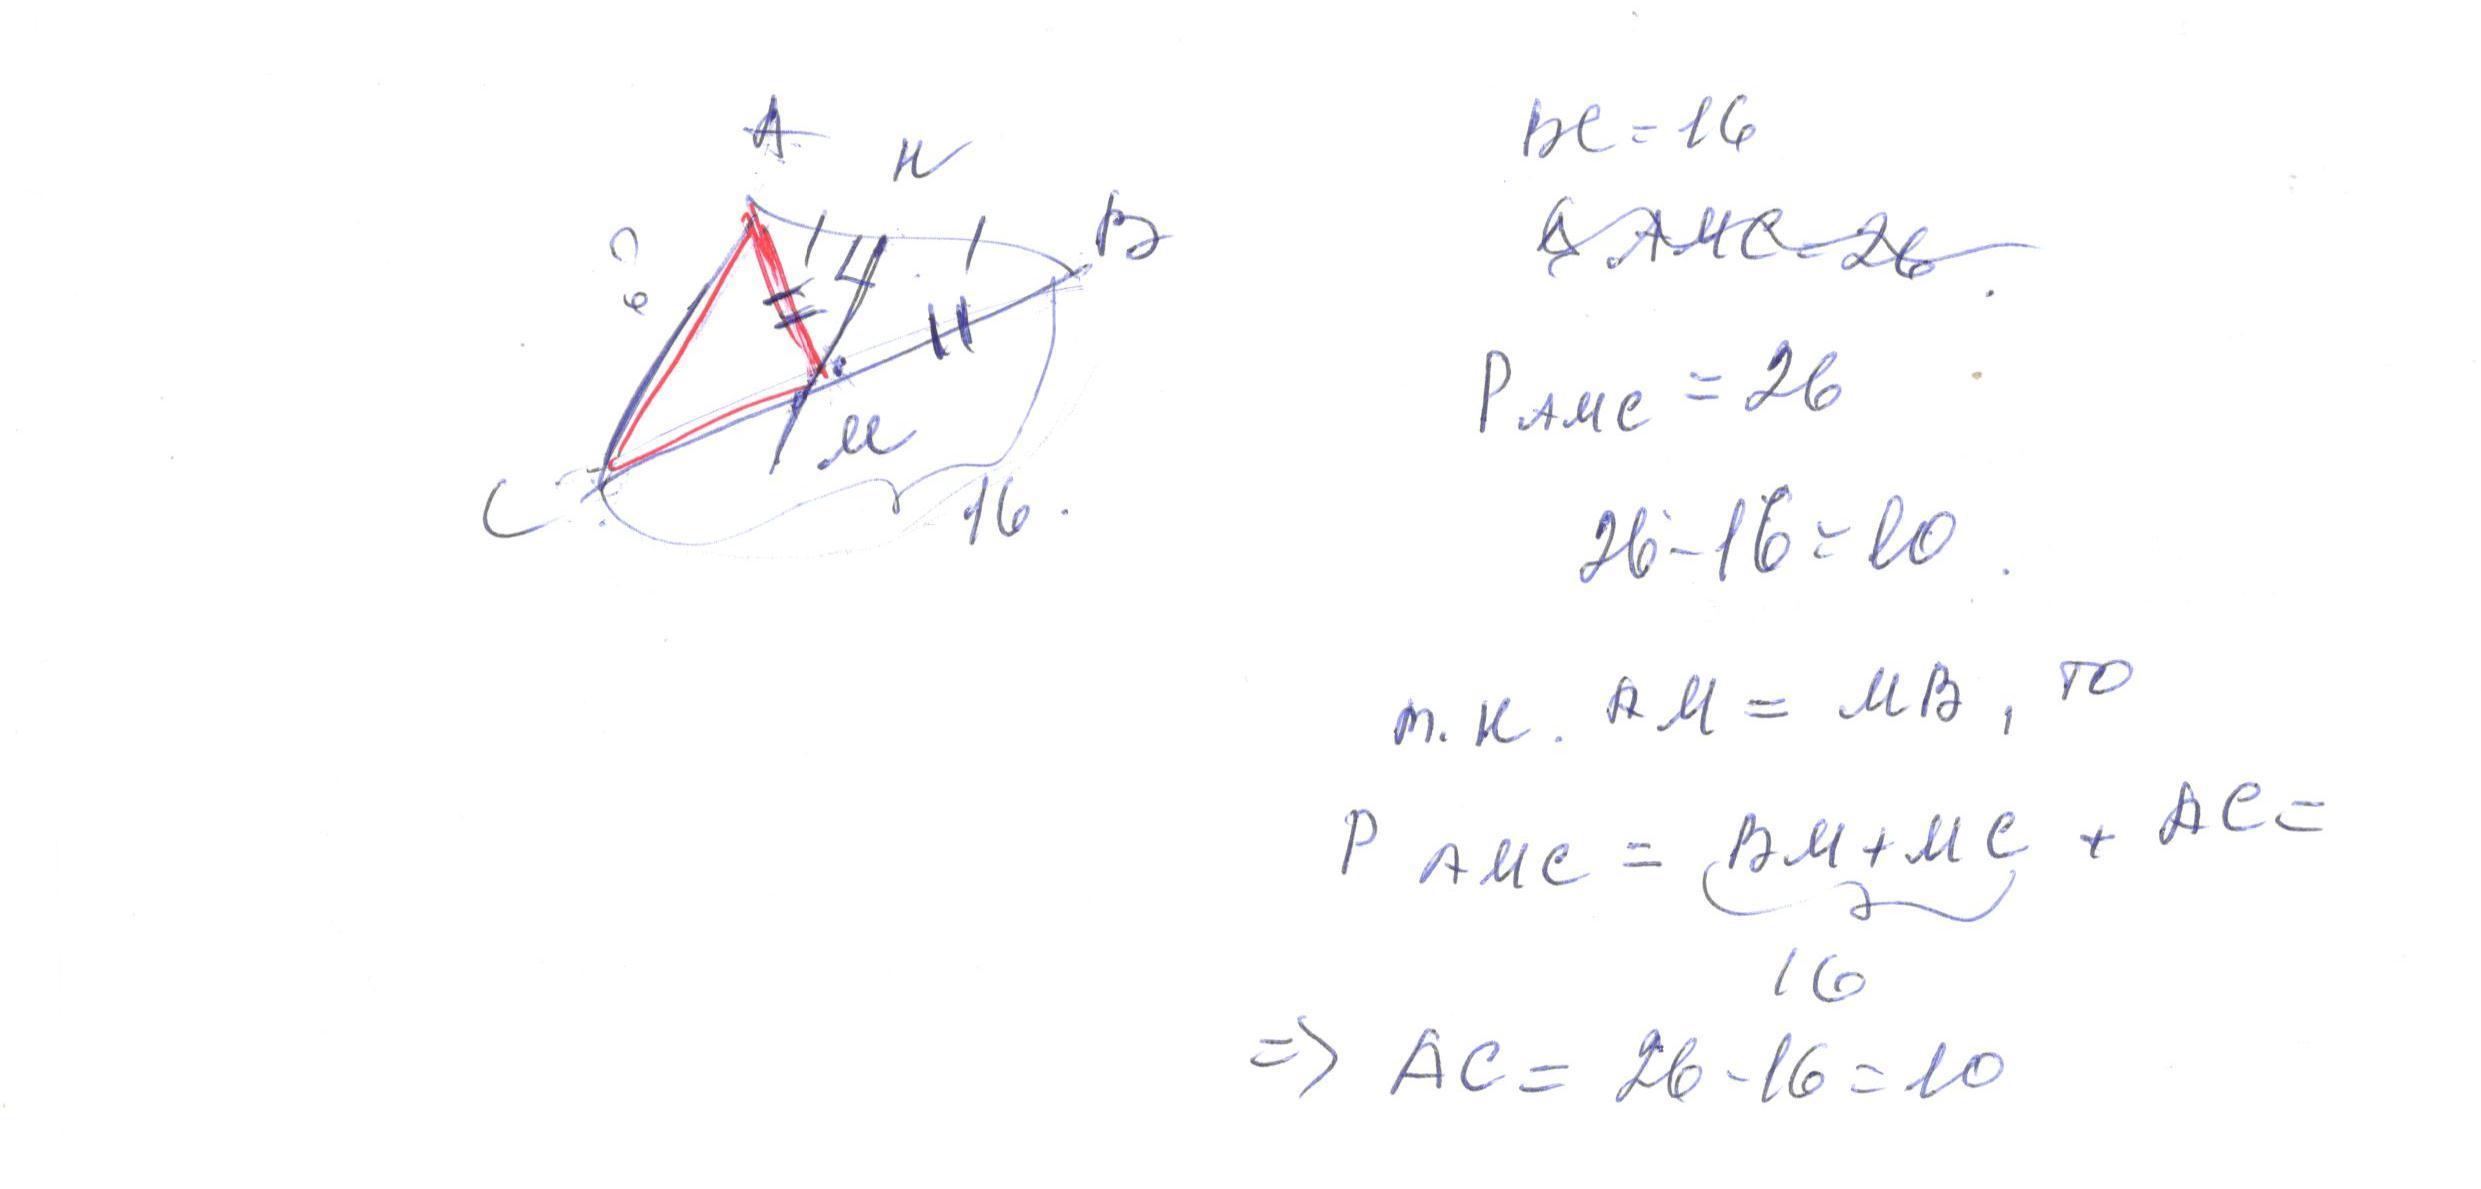 A
К
B
?
C
M
16.
BC = 16
△ AMC = 26
P AMC = 26
26 - 16 = 10.
т.к. AM = MB, то
P AMC = BM + MC + AC =
16
=> AC = 26 - 16 = 10